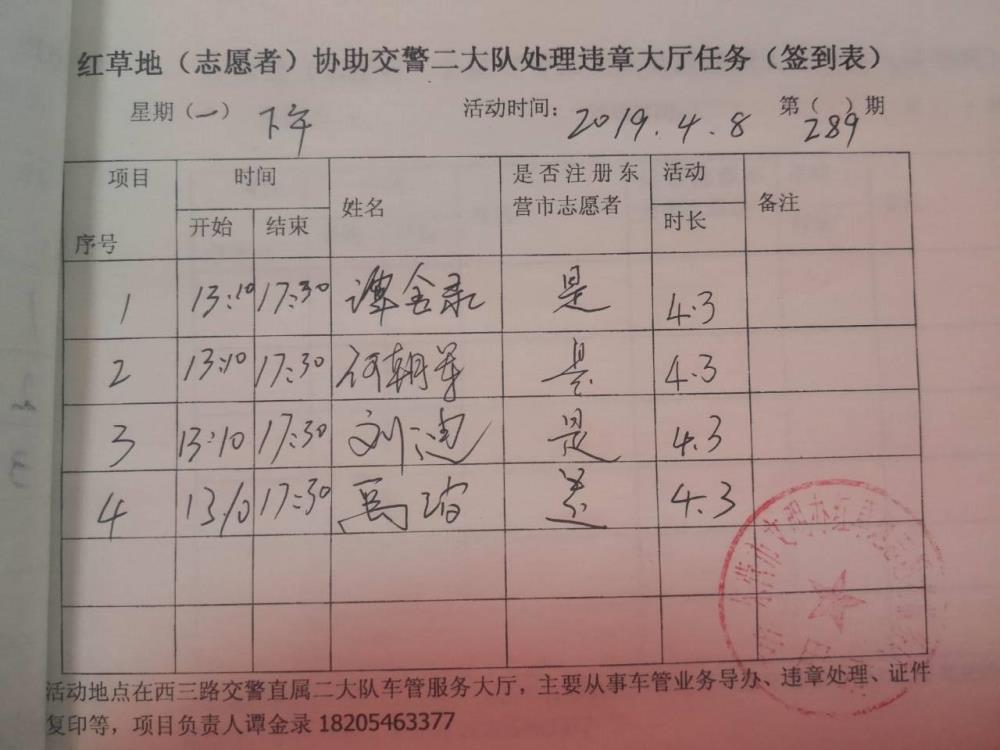 红草地（志愿者）协助交警二大队处理违章大厅任务（签到表）
星期（一） 下午 活动时间: 2019.4.8 第（289）期
项目 时间 姓名 是否注册东 活动 备注
序号 开始 结束 营市志愿者 时长
1 13:10 17:30 谭金录 是 4.3
2 13:10 17:30 何朝军 是 4.3
3 13:10 17:30 刘 是 4.3
4 13/0 17:30 马 是 4.3
活动地点在西三路交警直属二大队车管服务大厅，主要从事车管业务导办、违章处理、证件
复印等，项目负责人谭金录 18205463377